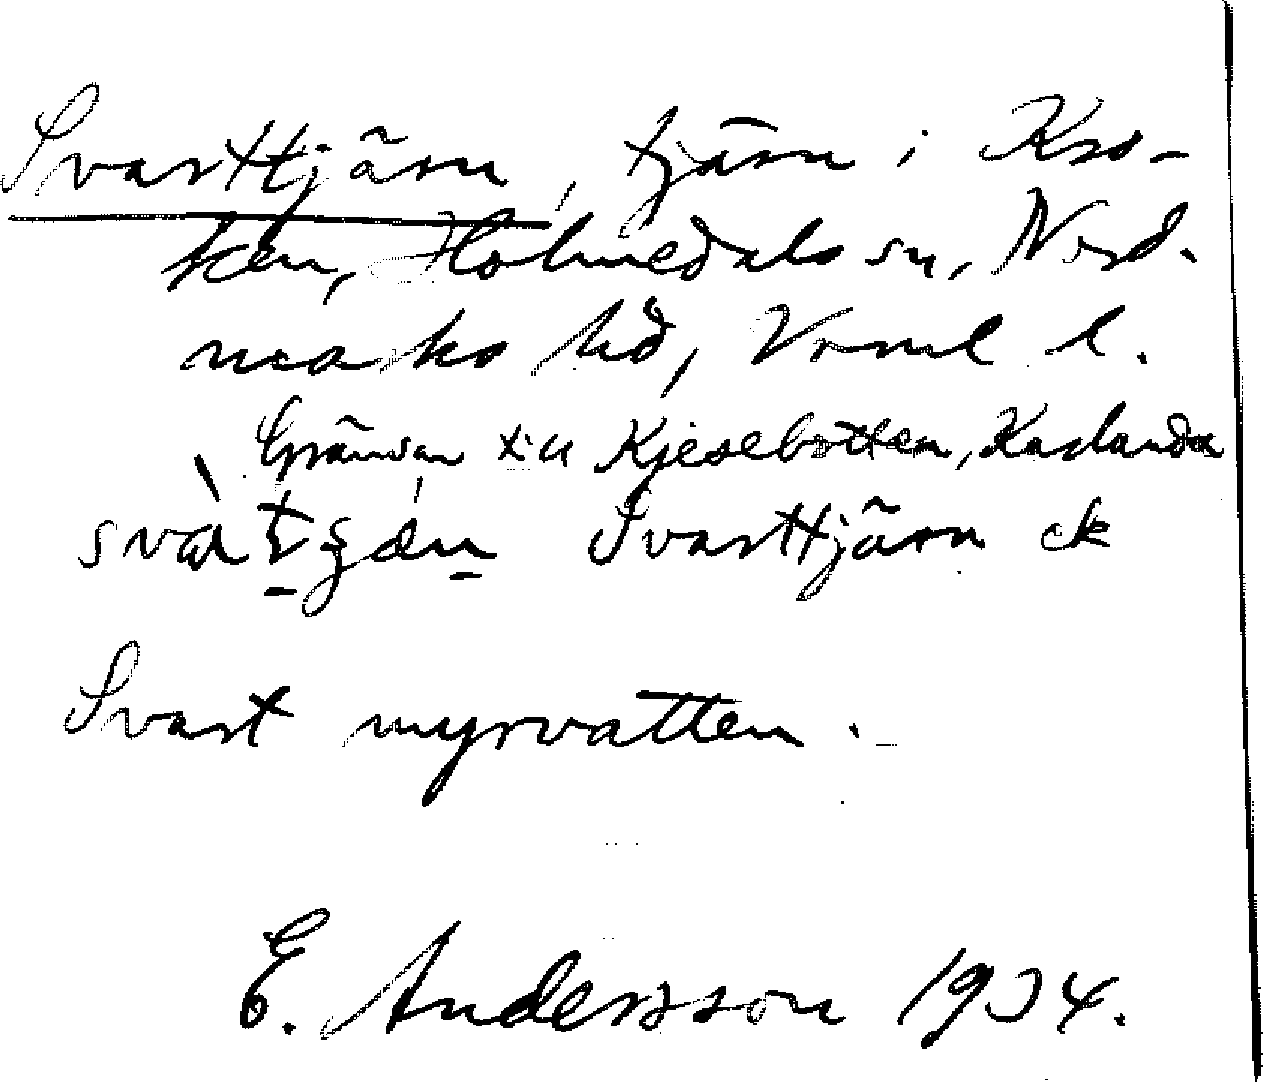 Svarttjärn, tjärn i Kro-
ken, Holmedals sn, Nord-
marks hd, Vrml l.
Gränsen till Kjesebotten, Karlanda
Svarttjärn ck
Svart myrvatten.
E. Andersson 1934.